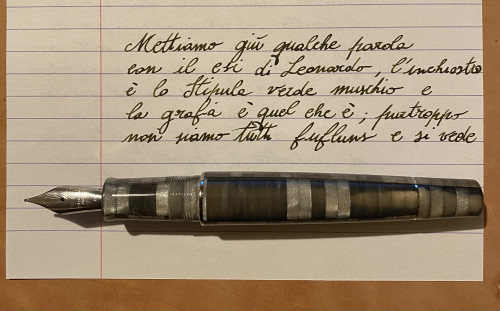 Mettiamo giù qualche parola
con il esi di Leonardo, l'inchiostro
è lo Stipula verde muschio e
la grafia è quel che è; purtroppo
non siamo tutti fufluns e si vede